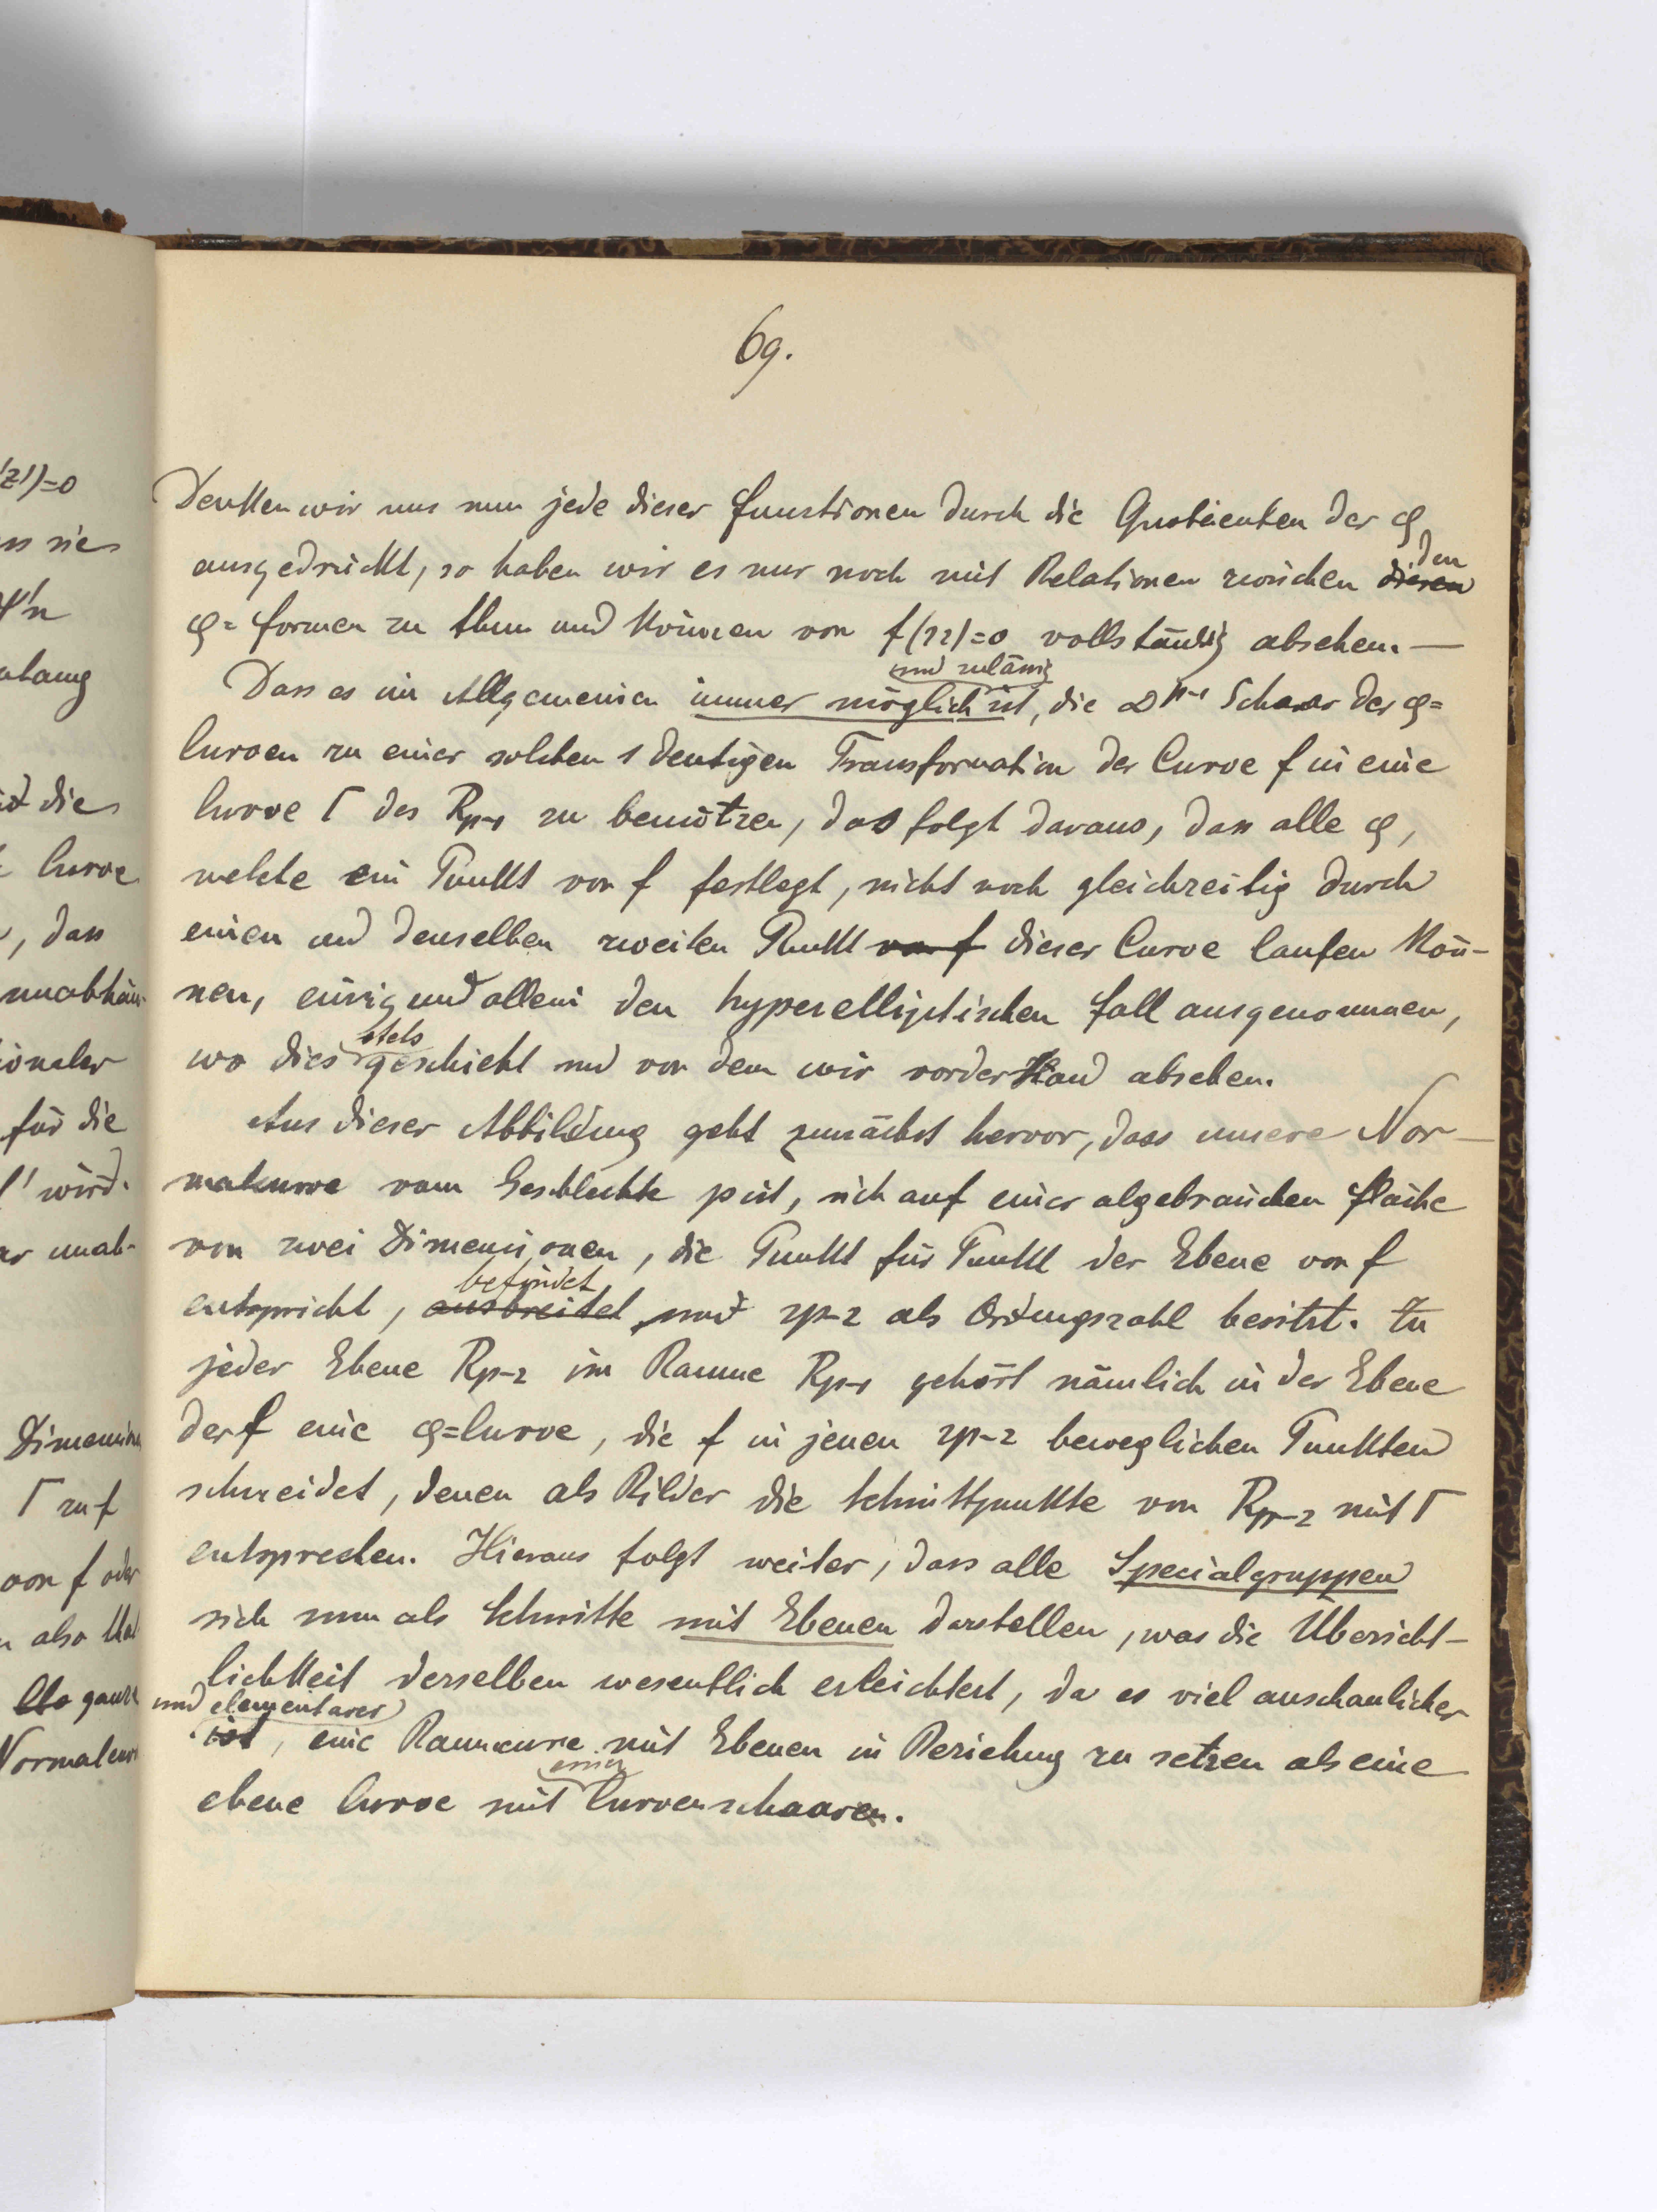 69.
Denken wir uns nun jede dieser Functionen durch die Quotienten der φ
ausgedrückt, so haben wir es nur noch mit Relationen zwischen diesen den
φ= Formen zu thun und können von f(sz)=0 vollständig absehen. —
und zulässig
Dass es im Allgemeinen immer möglich ist, die ∞^{p-1} Schaar der φ=
Curven zu einer solchen 1 deutigen Transformation der Curve f in eine
Curve Γ des R_{p-1} zu benützen, das folgt daraus, dass alle φ,
welche ein Punkt von f festlegt, nicht noch gleichzeitig durch
einen und denselben zweiten Punkt von f dieser Curve laufen kön-
nen, einzig und allein den hyperelliptischen Fall ausgenommen,
wo dies stets geschieht und von dem wir vorderhand absehen.
Aus dieser Abbildung geht zunächst hervor, dass unsere Nor-
malcurve vom Geschlechte p ist, sich auf einer algebraischen Fläche
von zwei Dimensionen, die Punkt für Punkt der Ebene von f
entspricht, ausbreitet befindet, und 2p-2 als Ordnungszahl besitzt. Zu
jeder Ebene R_{p-2} im Raume R_{p-1} gehört nämlich in der Ebene
der f eine φ=Curve, die f in jenen 2p-2 beweglichen Punkten
schneidet, denen als Bilder die Schnittpunkte von R_{p-2} mit Γ
entsprechen. Hieraus folgt weiter, dass alle Specialgruppen
sich nun als Schnitte mit Ebenen darstellen, was die Übersicht-
lichkeit derselben wesentlich erleichtert, da es viel anschaulicher
und elementarer
ist, eine Raumcurve mit Ebenen in Beziehung zu setzen als eine
ebene Curve mit einer Curvenschaaren.
z')=0
ist die
Curve
, dass
unabhän-
für die
Γ' wird.
unab-
Γ zu f
von f oder
ganze